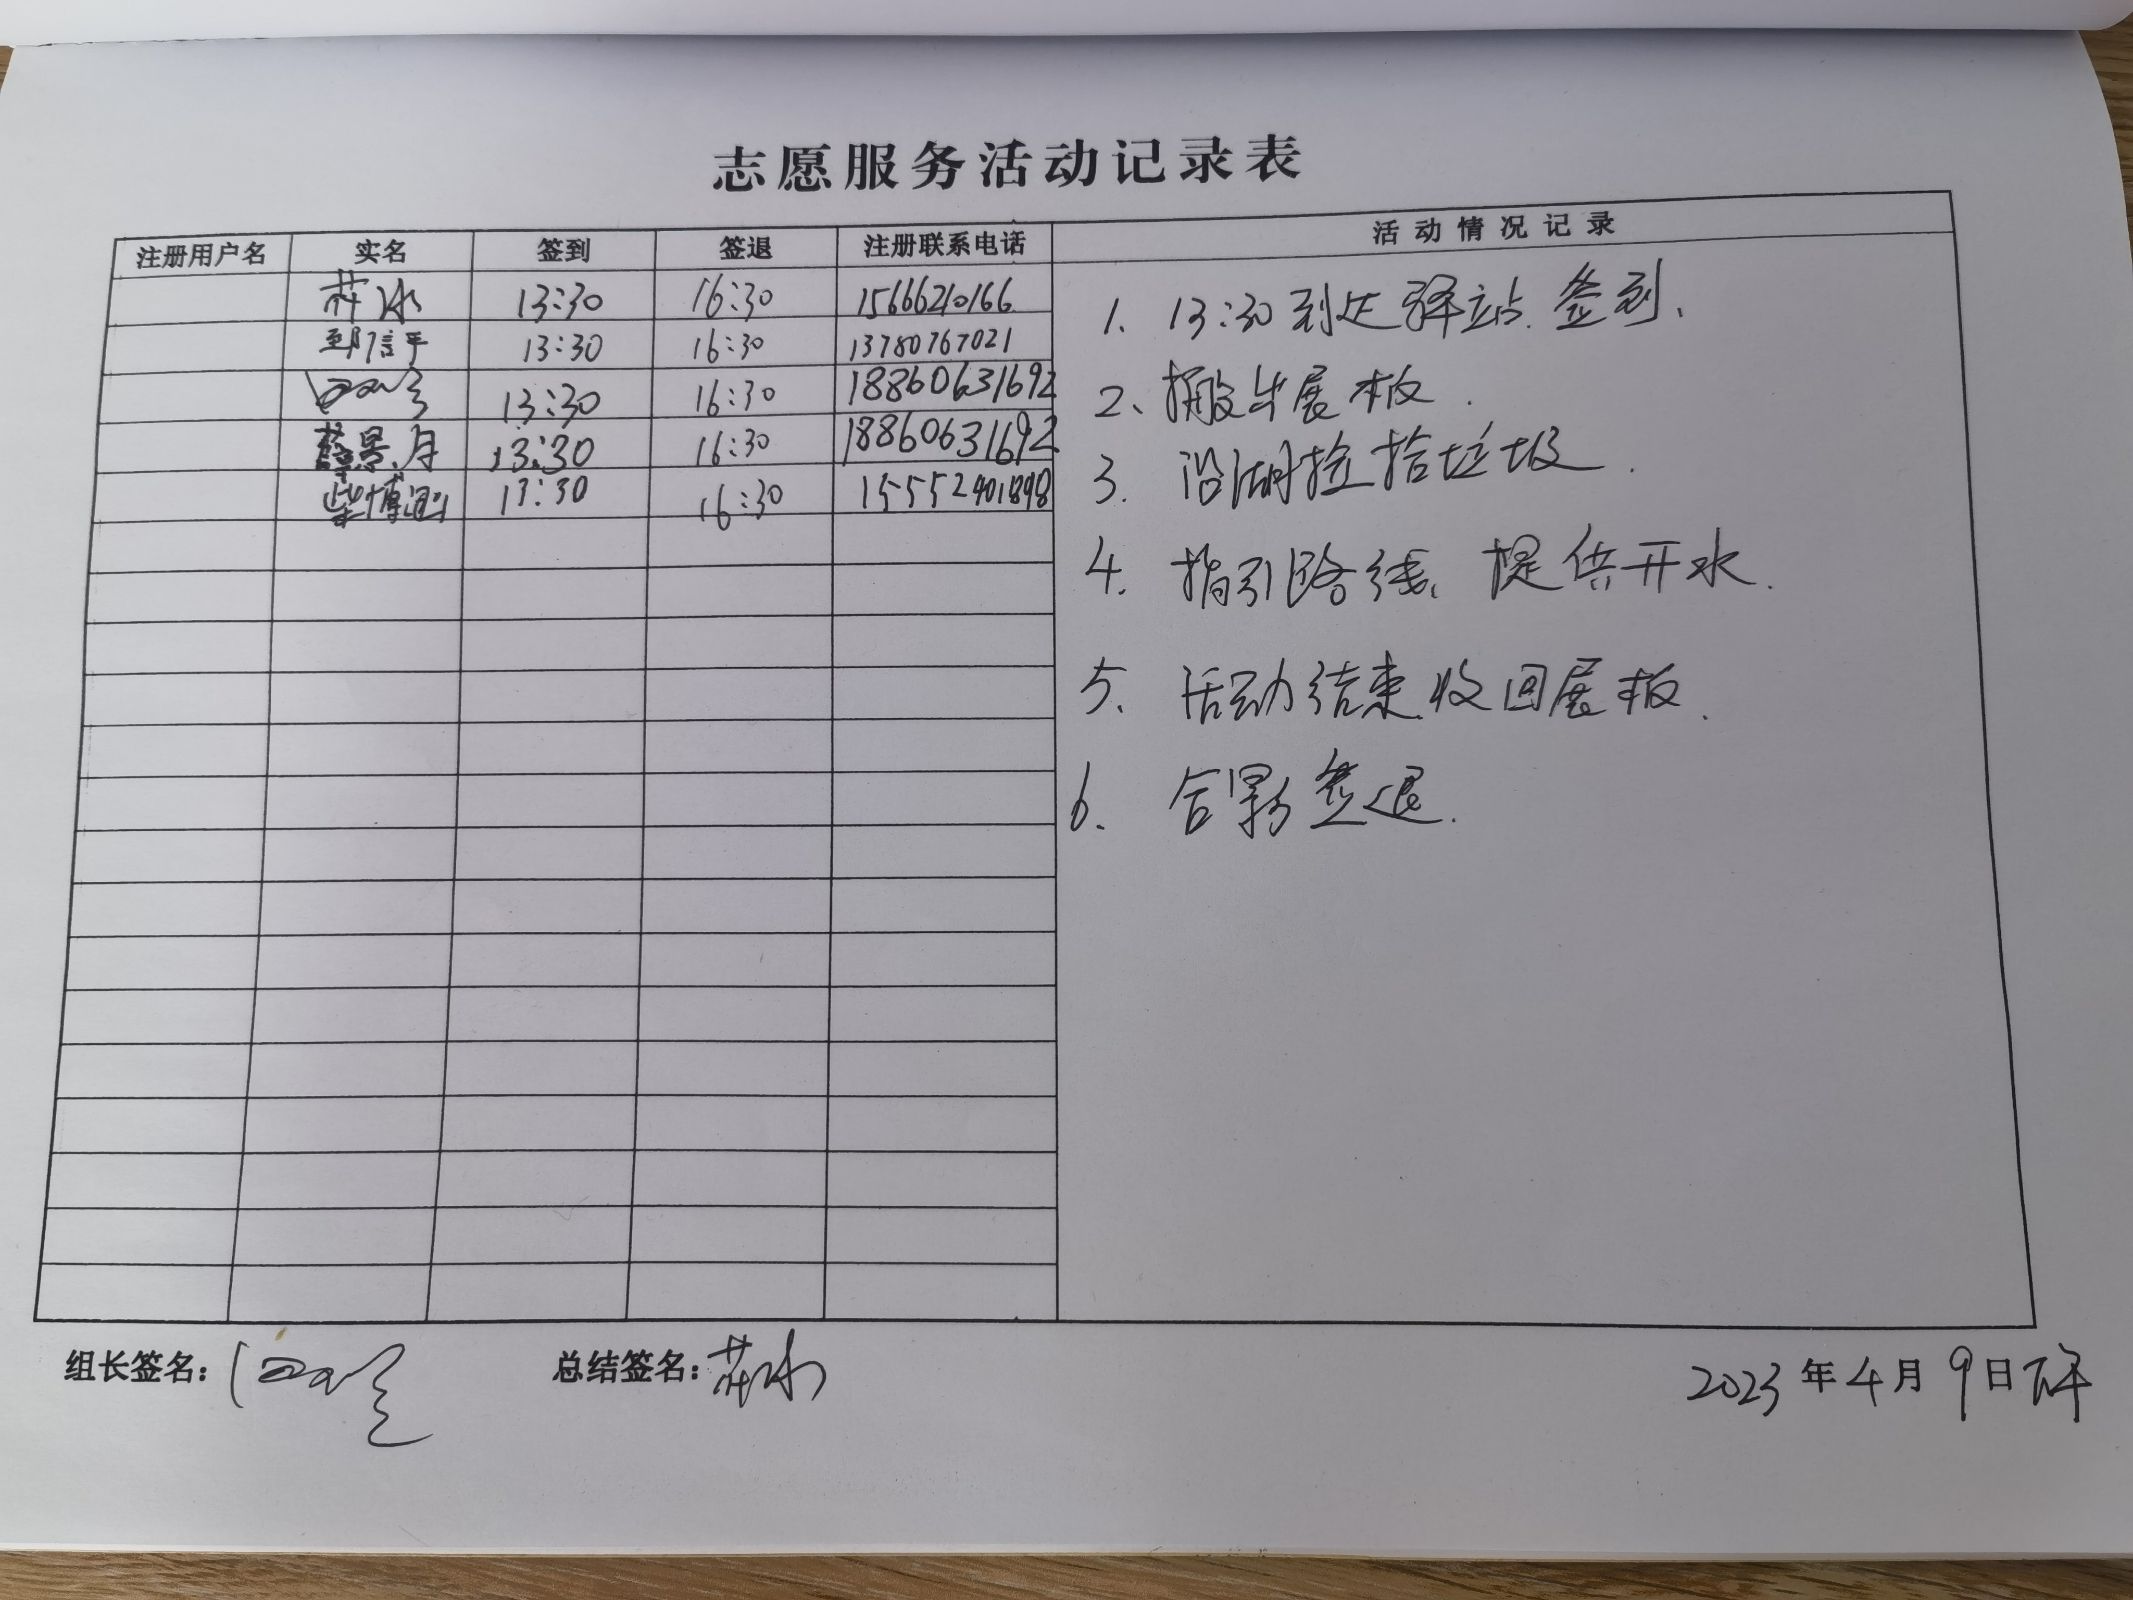 志愿服务活动记录表
注册用户名 实名 签到 签退 注册联系电话 活动情况记录
13:30 16:30 15666210166
邹信平 13:30 16:30 13780767021
13:30 16:30 18860631692
蔡景月 13:30 16:30 18860631692
柴博涵 13:30 16:30 15552401898
1. 13:30到达驿站.签到.
2、搬出展板.
3. 沿湖捡拾垃圾.
4. 指引路线、提供开水.
5. 活动结束.收回展板.
6. 合影签退.
组长签名: 总结签名: 2023年4月9日下午